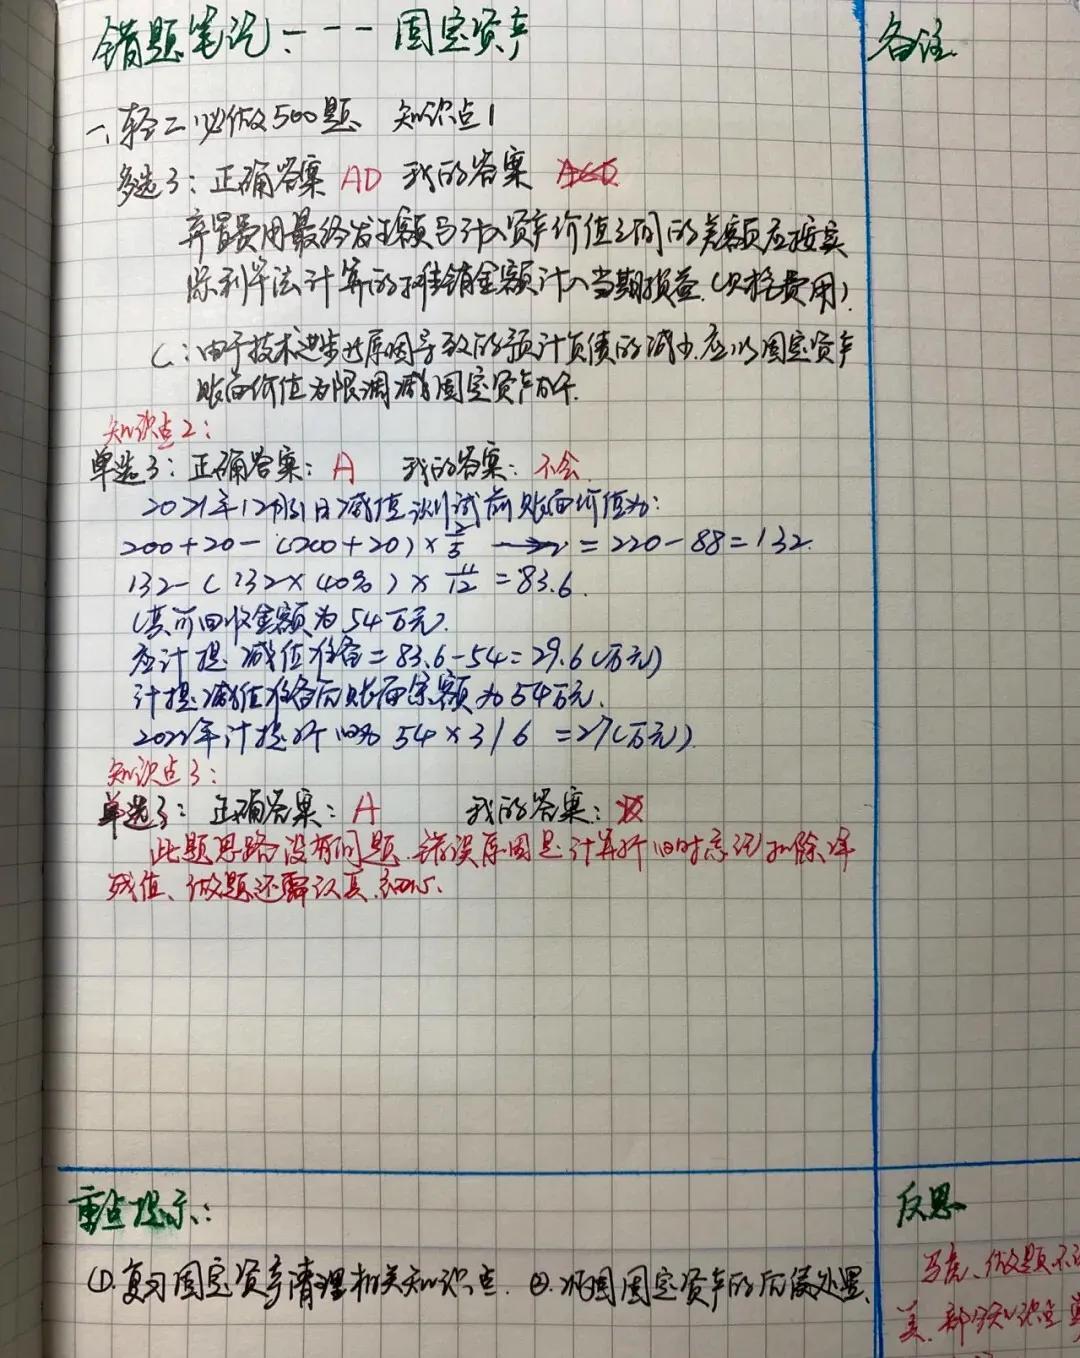 错题笔记：--- 固定资产
备注
一、轻二必做500题 知识点1
多选3：正确答案 AD 我的答案 ACD
弃置费用最终发生额与计入资产价值之间的差额应按实
际利率法计算的摊销金额计入当期损益.(财务费用)
C：由于技术进步等原因导致的预计负债的减少.应以固定资产
账面价值为限调减固定资产成本.
知识点2：
单选3：正确答案：A 我的答案：不会
2021年12月31日减值测试前账面价值为：
200+20-(200+20)×2/5 = 220-88=132.
132-(132×40%)×11/12=83.6.
(其可回收金额为54万元.
应计提减值准备=83.6-54=29.6(万元)
计提减值准备后账面余额为54万元.
2022年计提折旧为 54×3/6 =27(万元)
知识点3：
单选3：正确答案：A 我的答案：
此题思路没有问题.错误原因是计算折旧时忘记扣除净
残值、做题还需认真.细心.
重点提示：
①.复习固定资产清理相关知识点. ②.巩固固定资产的后续处置.
反思
马虎、做题不
美.部分知识点